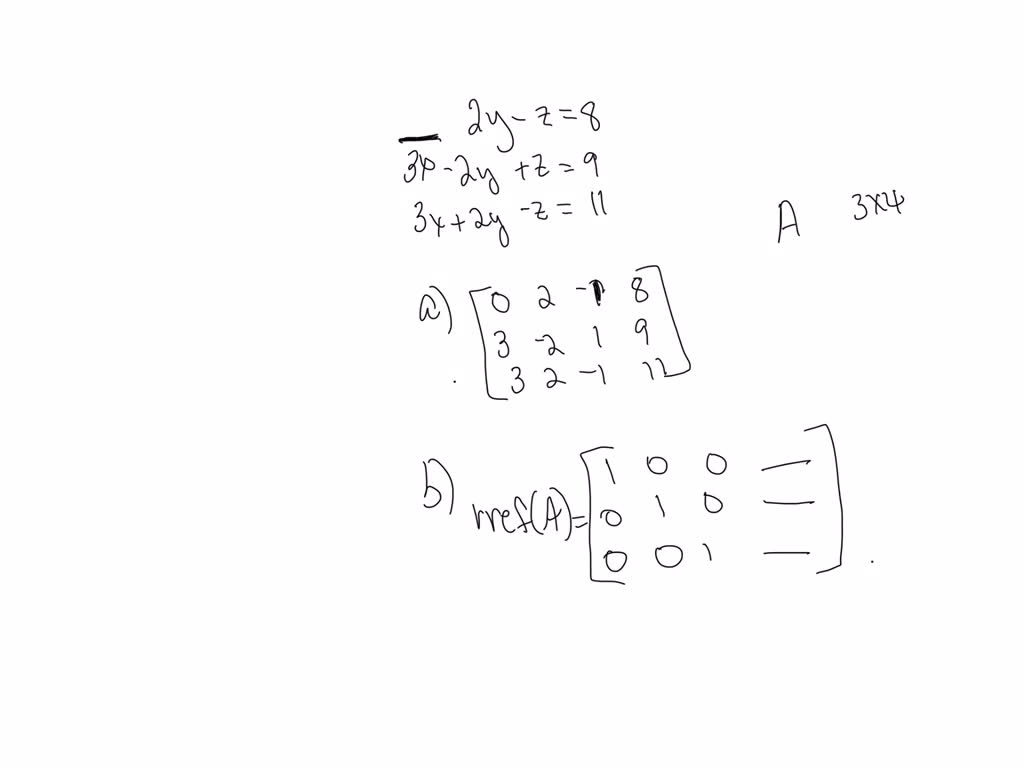 2y - z = 8
3x - 2y + z = 9
3x + 2y - z = 11
A 3x4
a) [ 0 2 -1 8
3 -2 1 9
3 2 -1 11 ]
b) rref(A) = [ 1 0 0 —
0 1 0 —
0 0 1 — ]